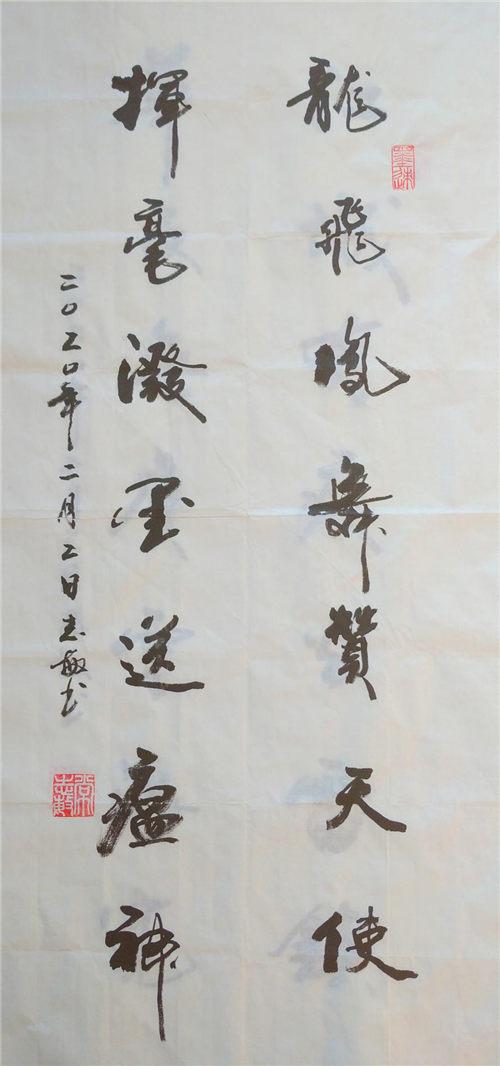 龍飛鳳舞贊天使
揮毫潑墨送瘟神
二〇二〇年二月二日志敏书